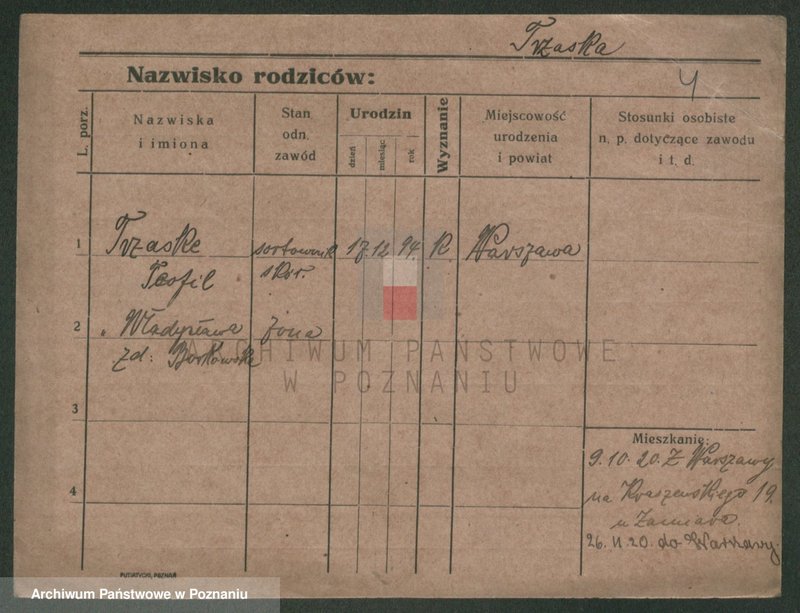 Trzaska
Nazwisko rodziców:
4
L. porz.
Nazwiska
i imiona
Stan
odn.
zawód
Urodzin
dzień
miesiąc
rok
Wyznanie
Miejscowość
urodzenia
i powiat
Stosunki osobiste
n. p. dotyczące zawodu
i t. d.
1 Trzaske sortownik 17. 12. 94. K. Warszawa
Teofil skór.
2 „ Władysława żona
zd: Borkowska
3
4
Mieszkanie:
9.10.20. Z Warszawy
na Kraszewskiego 19.
u
26. 11. 20. do Warszawy.
ARCHIWUM PAŃSTWOWE
W POZNANIU
PUTIATYCKI, POZNAŃ
Archiwum Państwowe w Poznaniu